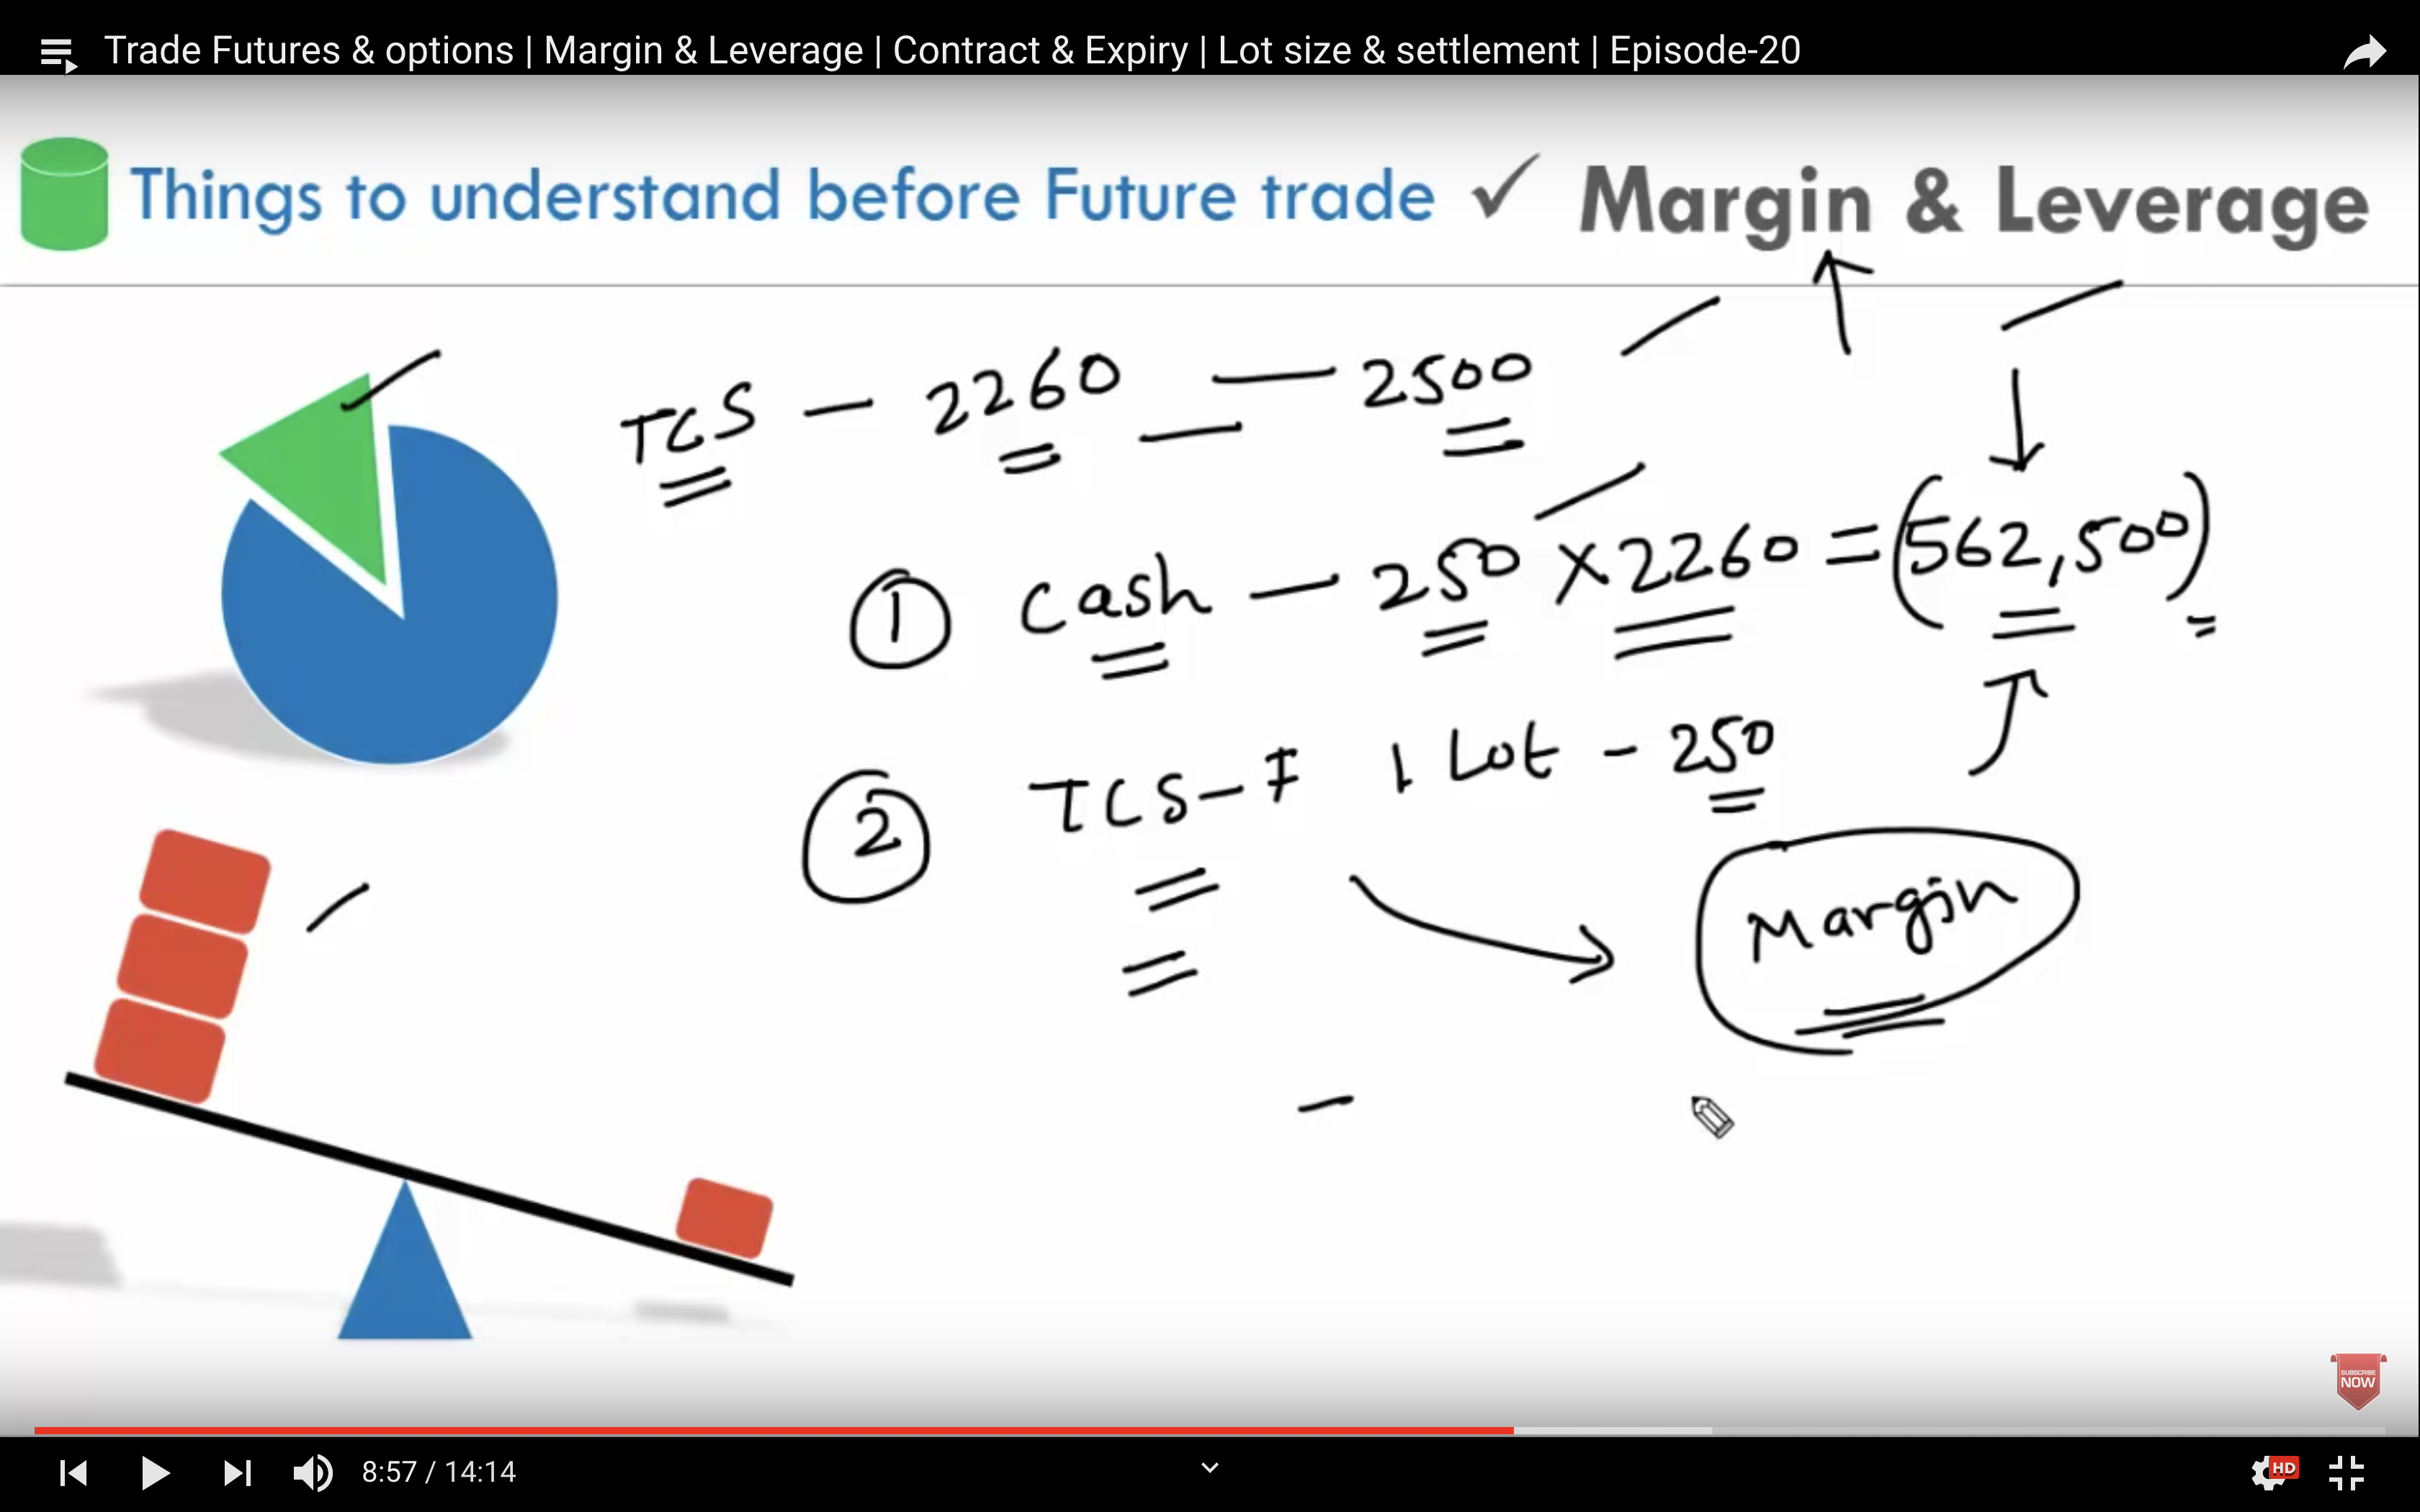 Trade Futures & options | Margin & Leverage | Contract & Expiry | Lot size & settlement | Episode-20
Things to understand before Future trade ✓ Margin & Leverage
TCS — 2260 — 2500
① Cash — 250 × 2260 = (562,500)
② TCS-F 1 Lot - 250
Margin
SUBSCRIBE
NOW
8:57 / 14:14
HD